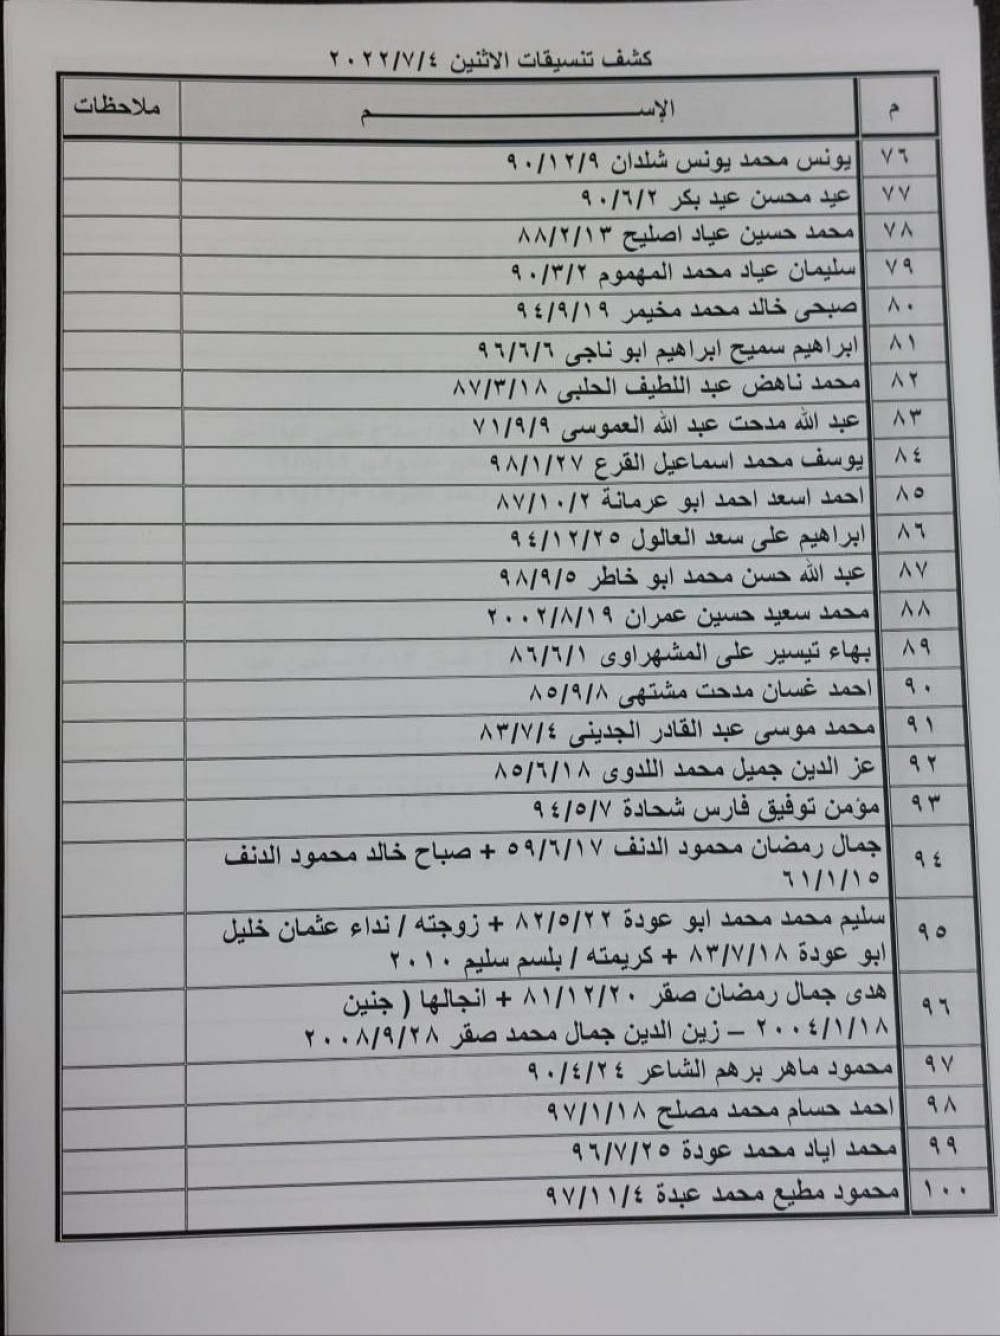 كشف تنسيقات الاثنين ٢٠٢٢/٧/٤
م الإســــــم ملاحظات
٧٦ يونس محمد يونس شلدان ٩٠/١٢/٩
٧٧ عيد محسن عيد بكر ٩٠/٦/٢
٧٨ محمد حسين عياد اصليح ٨٨/٢/١٣
٧٩ سليمان عياد محمد المهموم ٩٠/٣/٢
٨٠ صبحى خالد محمد مخيمر ٩٤/٩/١٩
٨١ ابراهيم سميح ابراهيم ابو ناجى ٩٦/٦/٦
٨٢ محمد ناهض عبد اللطيف الحلبى ٨٧/٣/١٨
٨٣ عبد الله مدحت عبد الله العموسى ٧١/٩/٩
٨٤ يوسف محمد اسماعيل القرع ٩٨/١/٢٧
٨٥ احمد اسعد احمد ابو عرمانة ٨٧/١٠/٢
٨٦ ابراهيم على سعد العالول ٩٤/١٢/٢٥
٨٧ عبد الله حسن محمد ابو خاطر ٩٨/٩/٥
٨٨ محمد سعيد حسين عمران ٢٠٠٢/٨/١٩
٨٩ بهاء تيسير على المشهراوى ٨٦/٦/١
٩٠ احمد غسان مدحت مشتهى ٨٥/٩/٨
٩١ محمد موسى عبد القادر الجدينى ٨٣/٧/٤
٩٢ عز الدين جميل محمد اللدوى ٨٥/٦/١٨
٩٣ مؤمن توفيق فارس شحادة ٩٤/٥/٧
٩٤ جمال رمضان محمود الدنف ٥٩/٦/١٧ + صباح خالد محمود الدنف
٦١/١/١٥
٩٥ سليم محمد محمد ابو عودة ٨٢/٥/٢٢ + زوجته / نداء عثمان خليل
ابو عودة ٨٣/٧/١٨ + كريمته / بلسم سليم ٢٠١٠
٩٦ هدى جمال رمضان صقر ٨١/١٢/٢٠ + انجالها ( جنين
٢٠٠٤/١/١٨ – زين الدين جمال محمد صقر ٢٠٠٨/٩/٢٨
٩٧ محمود ماهر برهم الشاعر ٩٠/٤/٢٤
٩٨ احمد حسام محمد مصلح ٩٧/١/١٨
٩٩ محمد اياد محمد عودة ٩٦/٧/٢٥
١٠٠ محمود مطيع محمد عبدة ٩٧/١١/٤